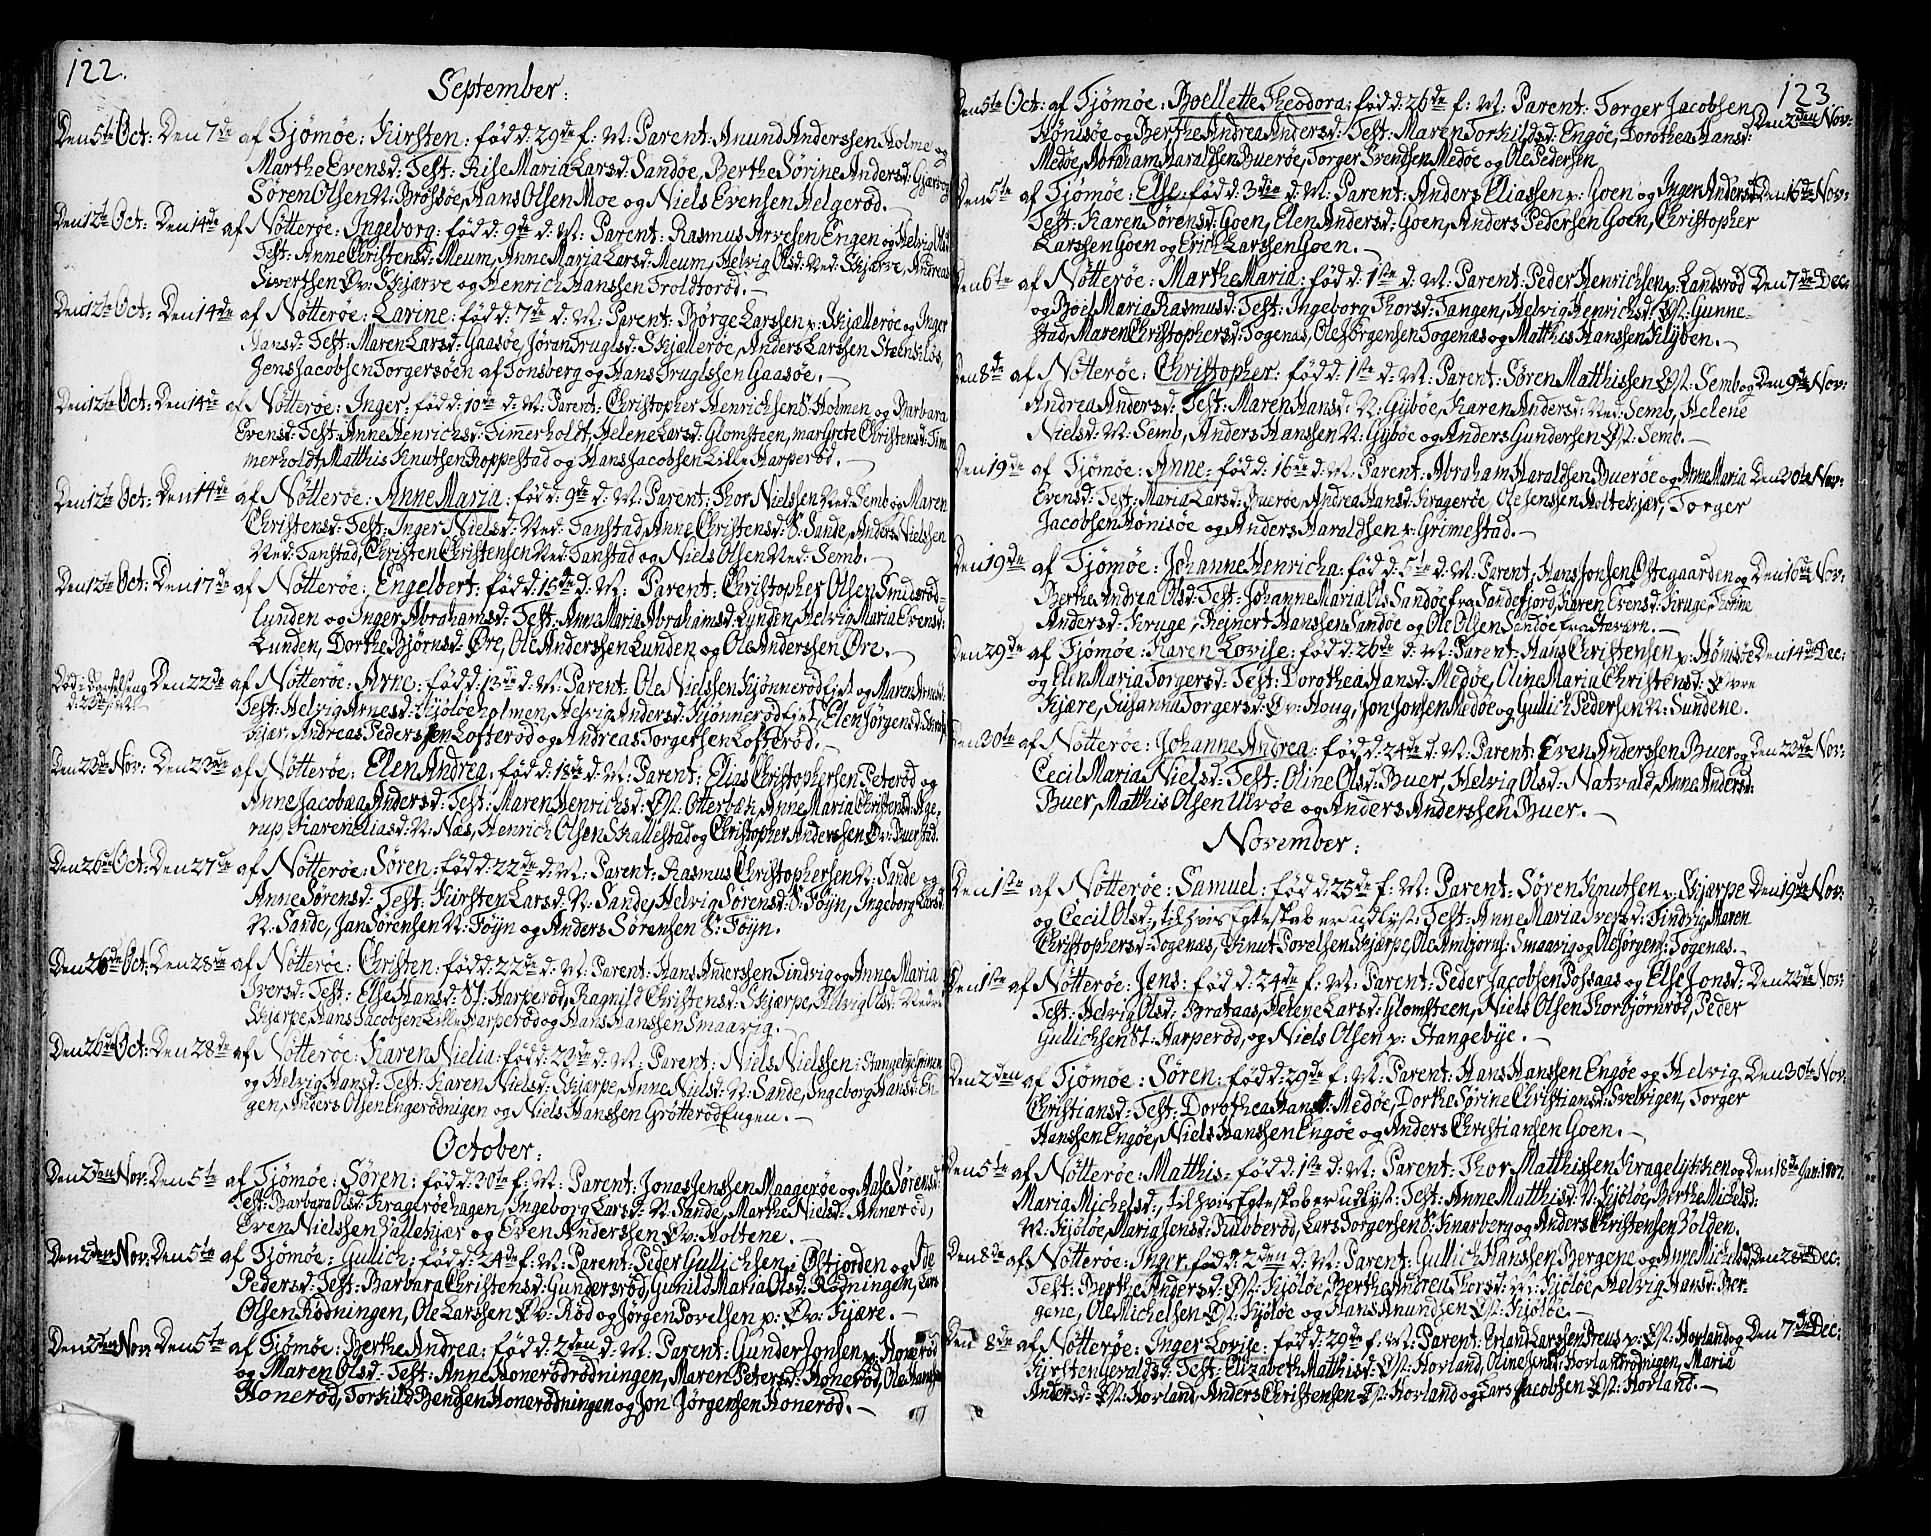 122.
September:
Den 5te Oct: Den 7de af Tjömöe: Kirsten: född: 29de f: M: Parent: Anund Anderssen Holme og
Marthe Evensd: Test: Rise Maria Larsd: Sandöe, Berthe Sörine Andersd:
Sören Olsen N: Brössöe, Hans Olsen Moe og Niels Evensen Helgeröd.
Den 12te Oct: Den 14de af Nötteröe: Ingeborg: född: 9de d: M: Parent: Rasmus Arvesen Engen og Helvig Olsd:
Test: Anne Christensd: Meum, Anne Maria Larsd: Meum, Helvig Olsd: Ned: Skjerve, Andreas
Sivertsen Öv: Skjærve og Henrich Hanssen Troldtoröd.
Den 12te Oct: Den 14de af Nötteröe: Larine: född: 7de d: M: Parent: Börge Larssen p: Skjælleröe og Inger
Hansd: Test: Maren Larsd: Gaasöe, Jöran Truglsd: Skjælleröe, Anders Larssen Steenklös,
Jens Jacobsen Torgersöen af Tönsberg og Hans Truglssen Gaasöe.
Den 12te Oct: Den 14de af Nötteröe: Inger: född: 10de d: M: Parent: Christopher Henrichsen S: Holmen og Barbara
Evensd: Test: Anne Henrichsd: Timmerholdt, Helene Larsd: Glomsteen, Margrete Christensd: Tim
merholdt, Matthis Knutsen Roppestad og Hans Jacobsen Lille Harperöd.
Den 12te Oct: Den 14de af Nötteröe: Anne Maria: född: 9de d: M: Parent: Thor Nielssen Ned: Semb og Maren
Christensd: Test: Inger Nielsd: Ned: Tanstad, Anne Christensd: S: Sande, Anders Nielssen
Ned: Tanstad, Christen Christensen Ned: Tanstad og Niels Olsen Ned: Semb.
Den 12te Oct: Den 17de af Nötteröe: Engelbert: född: 15de d: M: Parent: Christopher Olsen Smidsröd-
lunden og Inger Abrahamsd: Test: Anne Maria Abrahamsd: Lunden, Helvig Maria Evensd:
Lunden, Dorthe Björnsd: Öre, Ole Anderssen Lunden og Ole Anderssen Öre.
Den 22de af Nötteröe: Arne: född: 13de d: M: Parent: Ole Nielssen Kjönneröd Ejet og Maren Arnesd:
Test: Helvig Arnesd: Kjölöeholmen, Helvig Andersd: Kjönneröd Ejet, Elen Jörgensd:
kjær, Andreas Pederssen Lofteröd og Andreas Torgersen Lofteröd.
Den 23de Nov: Den 23de af Nötteröe: Elen Andrea: född: 18de d: M: Parent: Elias Christophersen Peteröd og
Anne Jacobæa Andersd: Test: Maren Henrichsd: Öst: Otterbæk, Anne Maria Christensd: Age-
rup, Karen Eliasd: N: Næs, Henrich Olsen Skallestad og Christopher Anderssen Öv: Buerstad.
Den 26de Oct: Den 27de af Nötteröe: Sören: född: 22de d: M: Parent: Rasmus Christophersen N: Sande og
Anne Sörensd: Test: Kirsten Larsd: N: Sande, Helvig Sörensd: S: Föyn, Ingeborg Larsd:
N: Sande, Jan Sörensen N: Föyn og Anders Sörensen S: Föyn.
Den 26de Oct: Den 28de af Nötteröe: Christen: född: 22de d: M: Parent: Hans Anderssen Tindvig og Anne Maria
Iversd: Test: Else Hansd: St: Harperöd, Ragnild Christensd: Skjærpe, Helvig Olsd: Nedre
Skjærpe, Hans Jacobsen Lille Harperöd og Hans Hanssen Smaavig.
Den 26de Oct: Den 28de af Nötteröe: Karen Nielia: född: 23de d: M: Parent: Niels Nielssen: Stangebyespinen
og Helvig Hansd: Test: Karen Nielsd: Skjærpe, Anne Nielsd: N: Sande, Ingeborg Hansd: En-
gen, Anders Olsen Engerödnigen og Niels Hanssen Grotteröd Engen.
October:
Den 2den Nov: Den 5te af Tjömöe: Sören: född: 20de f: M: Parent: Jonas Jenssen Maageröe og Aase Sörensd:
Test: Barbara Olsd: Krageröehagen, Ingeborg Larsd: N: Sande, Marthe Nielsd: Anneröd,
Even Nielssen Vallekjær og Even Anderssen Öv: Holtene.
Den 2den Nov: Den 5te af Tjömöe: Gullich: född: 24de f: M: Parent: Peder Gullichsen p: Östjorden og Ide
Pedersd: Test: Barbara Christensd: Gunderöd, Gunild Maria Olsd: Rödningen, Lars
Olsen Rödningen, Ole Larssen Öv: Röd og Jörgen Povelsen p: Öv: Kjære.
Den 2den Nov: Den 5te af Tjömöe: Berthe Andrea: född: 2den d: M: Parent: Gunder Jonsen p: Honeröd
og Maren Olsd: Test: Anne Honerödrödningen, Maren Petersd: Honeröd, Ole Hanssen
Honeröd, Torkild Bendsen Honerödningen og Jon Jörgensen Honeröd.
123
Den 5te Oct: af Tjömöe: Boellette Theodora: född: 26de f: M: Parent: Torger Jacobsen Den 2den Nov:
Hönisöe og Berthe Andrea Andersd: Test: Maren Torkildsd: Engöe, Dorothea Hansd:
Medöe, Abraham Haraldsen Bueröe, Torger Svendsen Medöe og Ole Pedersen
Den 5te af Tjömöe: Else: född: 3die d: M: Parent: Anders Eliassen p: Goen og Inger Andersd: Den 16de Nov:
Test: Karen Sörensd: Goen, Elen Andersd: Goen, Anders Pedersen Goen, Christopher
Larssen Goen og Erich Larssen Goen.
Den 6te af Nötteröe: Marthe Maria: född: 1ste d: M: Parent: Peder Henrichsen p: Landsröd Den 7de Dec:
og Boel Maria Rasmusd: Test: Ingeborg Thorsd: Tangen, Helvig Henrichsd: Öst: Gunne-
stad, Maren Christophersd: Togenæs, Ole Jörgensen Togenæs og Matthis Hanssen Klyben.
Den 8de af Nötteröe: Christopher: född: 1ste d: M: Parent: Sören Matthissen Öst: Semb og Den 9de Nov:
Andrea Andersd: Test: Maren Hansd: N: Gyböe, Karen Andersd: Ned: Semb, Helene
Nielsd: N: Semb, Anders Hanssen N: Gyböe og Anders Gundersen Öst: Semb.
Den 19de af Tjömöe: Anne: född: 16de d: M: Parent: Abraham Haraldsen Bueröe og Anne Maria Den 20de Nov:
Evensd: Test: Maria Larsd: Bueröe, Andrea Hansd: Krageröe, Ole Jenssen Holtekjær, Torger
Jacobsen Hönisöe og Anders Haraldsen p: Grimestad.
Den 19de af Tjömöe: Johanne Henricha: född: 5te d: M: Parent: Hans Jonsen Östegaarden og Den 16de Nov:
Berthe Andrea Olsd: Test: Johanne Maria Olsd: Sandöe fra Sandefjord, Karen Evensd: Kruge, Thrine
Andersd: Kruge, Rejnert Hanssen Sandöe og Ole Olsen Sandöe fra Stavern.
Den 29de af Tjömöe: Karen Lovise: född: 26de d: M: Parent: Hans Christensen p: Hönisöe Den 14de Dec:
og Elen Maria Torgersd: Test: Dorothea Hansd: Medöe, Eline Maria Christensd: Övre
Kjære, Susanna Torgersd: Öv: Houg, Jon Jonsen Medöe og Gullich Pedersen N: Sundene.
Den 30te af Nötteröe: Johanne Andrea: född: 24de d: M: Parent: Even Anderssen Buer og Den 23de Nov:
Cecil Maria Nielsd: Test: Oline Olsd: Buer, Helvig Olsd: Natvald, Anne Andersd:
Buer, Matthis Olsen Ulvöe og Anders Anderssen Buer.
November:
Den 1ste af Nötteröe: Samuel: född: 25de f: M: Parent: Sören Knutsen p: Skjærpe Den 19de Nov:
og Cecil Olsd:, til hvis Egteskab er udlyst: Test: Anne Maria Iversd: Tindvig, Maren
Christophersd: Togenæs, Knut Povelsen Skjærpe, Ole Ambjörns: Smaavig og Ole Jörgens: Togenæs.
Den 1ste af Nötteröe: Jens: född: 24de f: M: Parent: Peder Jacobsen Possaas og Else Jonsd: Den 23de Nov:
Test: Helvig Olsd: Brataas, Helene Larsd: Glomsteen, Niels Olsen Thorbjörnröd, Peder
Gullichsen St: Harperöd, og Niels Olsen p: Stangebye.
Den 2den af Tjömöe: Sören: född: 29de f: M: Parent: Hans Hanssen Engöe og Helvig Den 30te Nov:
Christiansd: Test: Dorothea Hansd: Medöe, Dorthe Sörine Christiansd: Svelvigen, Torger
Hanssen Engöe, Niels Hanssen Engöe og Anders Christiansen Goen.
Den 5te af Nötteröe: Matthis: född: 1ste d: M: Parent: Thor Matthissen Kragelykken og Den 18de Jan: 1807.
Maria Michelsd:, til hvis Egteskab er udlyst: Test: Anne Matthisd: N: Kjölöe, Berthe Michelsd:
N: Kjölöe, Maria Jensd: Rubberöd, Lars Torgersen S: Knarberg og Anders Christensen Bolden.
Den 8de af Nötteröe: Inger: född: 2den d: M: Parent: Gullich Hanssen Bergene og Anne Michelsd: Den 28de Dec:
Test: Berthe Andersd: Öst: Kjölöe, Berthe Andrea Thorsd: N: Kjölöe, Helvig Hansd: Ber-
gene, Ole Michelsen Öst: Kjölöe og Hans Anundsen Öst: Kjölöe.
Den 8de af Nötteröe: Inger Lovise: född: 29de f: M: Parent: Erland Larssen Preus p: Öst: Hovland og Den 7de Dec:
Kirsten Gevaldsd: Test: Elizabeth Mathisd: Öst: Hovland, Oline Jensd: Hovlandrödnigen, Maria
Andersd: Öst: Hovland, Anders Christensen Öst: Hovland og Lars Jacobsen Öst: Hovland.